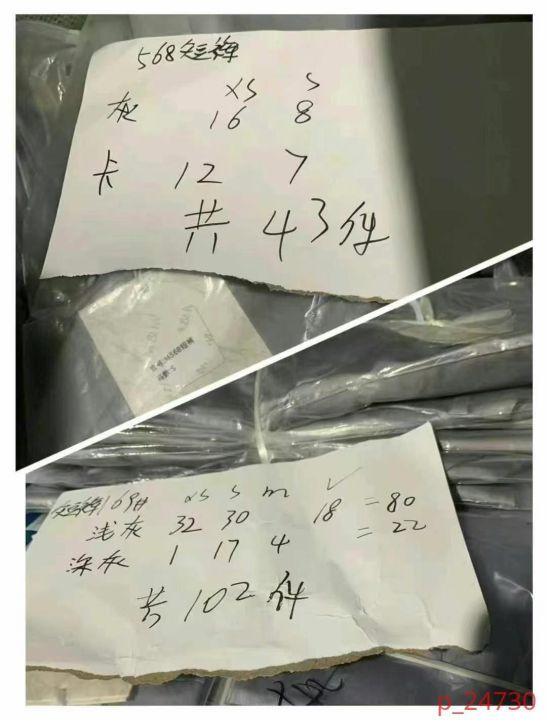 568短裤
XS S
灰 16 8
卡 12 7
共 43件
短裤169# XS S m ✓
浅灰 32 30 18 =80
深灰 1 17 4 =22
共102件
p_24730